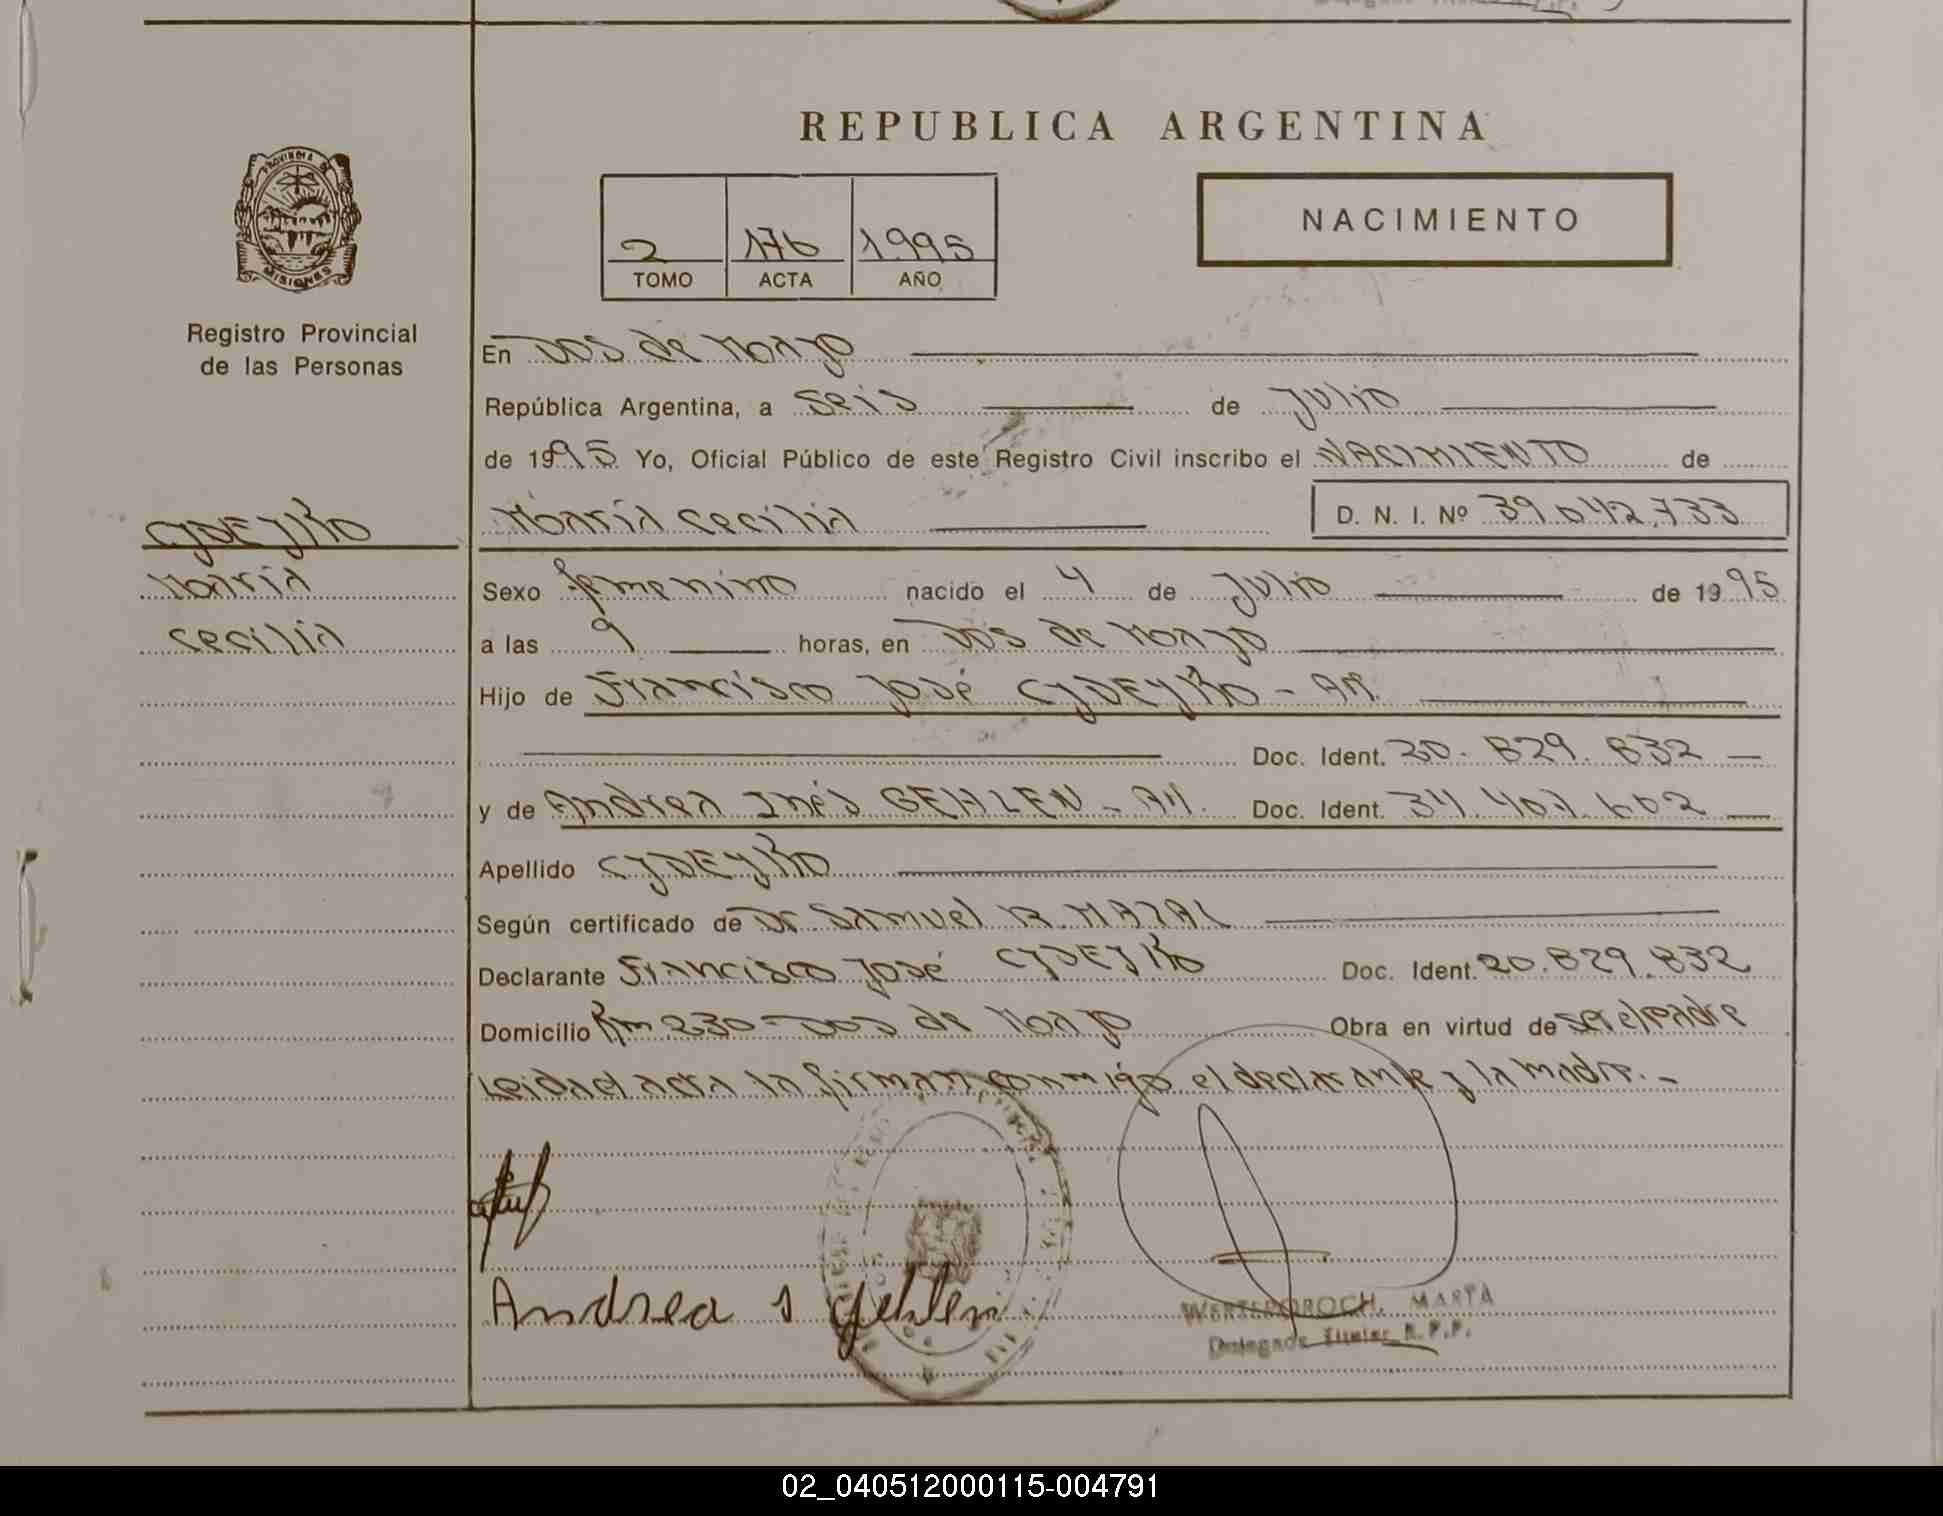 REPUBLICA ARGENTINA
PROVINCIA DE
MISIONES
Registro Provincial
de las Personas
2 176 1995
TOMO ACTA AÑO
NACIMIENTO
En Dos de Mayo
República Argentina, a seis de Julio
de 1995 Yo, Oficial Público de este Registro Civil inscribo el NACIMIENTO de
María Cecilia D. N. I. Nº 39.042.733
María
Cecilia
Sexo femenino nacido el 4 de Julio de 1995
a las 9 horas, en Dos de Mayo
Hijo de Francisco José
Doc. Ident. 20.829.832
y de Andrea Inés GEHLEN - Doc. Ident.
Apellido
Según certificado de Dr. Samuel R. MAZAL
Declarante Francisco José Doc. Ident. 20.829.832
Domicilio Km 230 - Dos de Mayo Obra en virtud de ser el padre
Leida el acta la firman conmigo el declarante y la madre.-
Andrea I Gehlen
MARTA
Titular R.P.P.
02_040512000115-004791